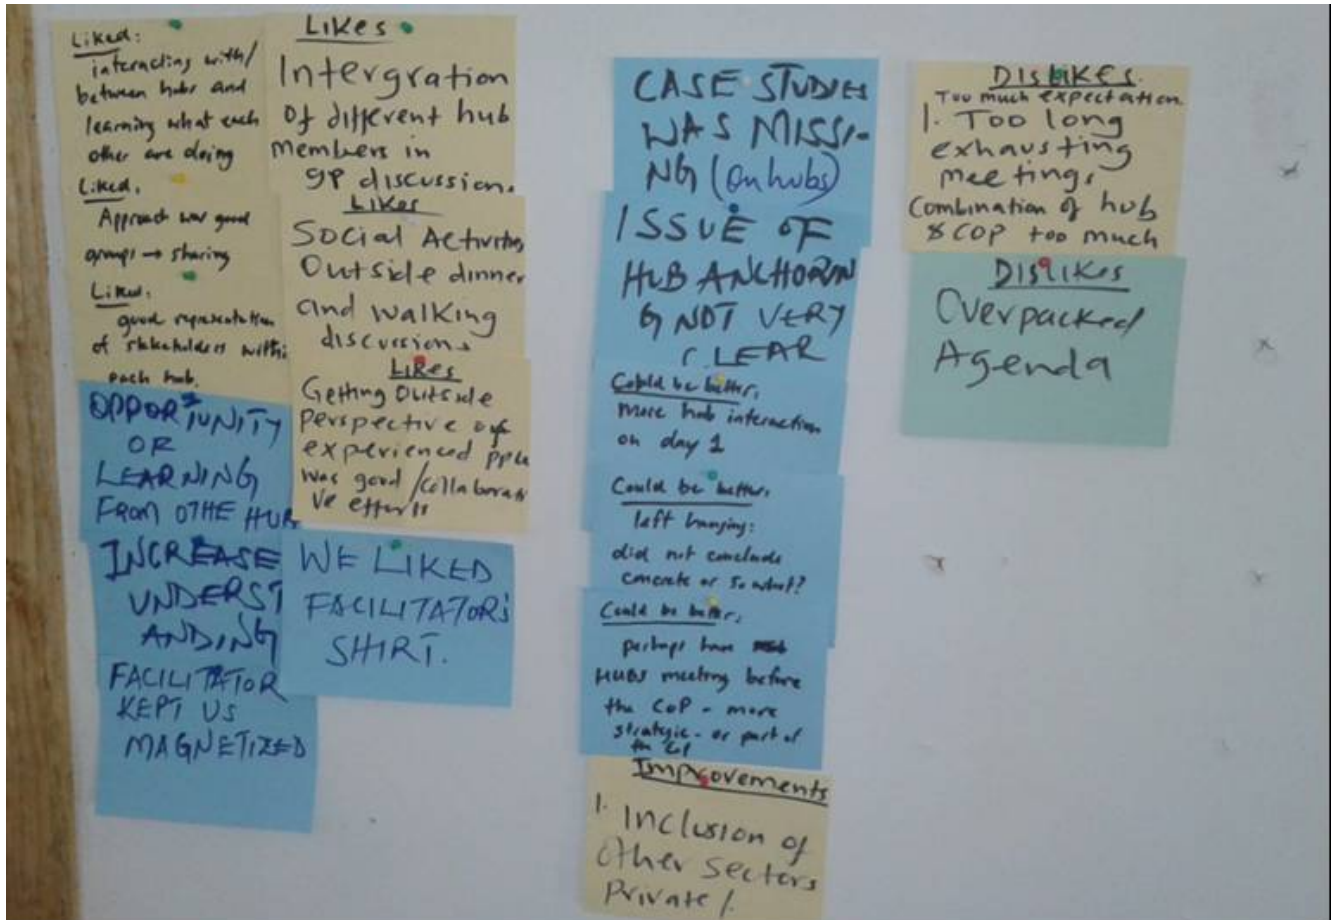 Liked:
interacting with/
between hubs and
learning what each
other are doing
Liked.
Approach was good
groups → sharing
Liked.
good representation
of stakeholders within
each hub.
OPPORTUNITY
OR
LEARNING
FROM OTHE HUB
INCREASE
UNDERST
ANDING
FACILITATOR
KEPT US
MAGNETIZED
Likes
Intergration
Of different hub
members in
gp discussion.
Likes
Social Activities
Outside dinner
and walking
discussions
Likes
Getting Outside
perspective of
experienced pple
was good / collaborati
ve efforts
WE LIKED
FACILITATOR'S
SHIRT.
CASE STUDIES
WAS MISSI-
NG (on hubs)
ISSUE OF
HUB ANCHORIN
G NOT VERY
CLEAR
Could be better.
more hub interaction
on day 1
Could be better.
left hanging:
did not conclude
concrete or so what?
Could be better.
perhaps have
HUBS meeting before
the CoP - more
strategic - or part of
the CoP
Improvements
1. Inclusion of
Other Sectors
Private /.
DISLIKES.
Too much expectation.
1. Too long
exhausting
meetings
Combination of hub
& COP too much
DISLIKES
Overpacked
Agenda